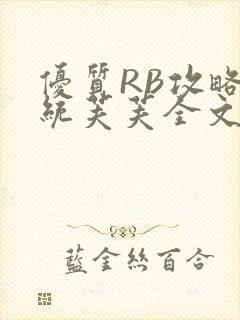 優質RB攻略
統芙芙全文
藍金絲百合